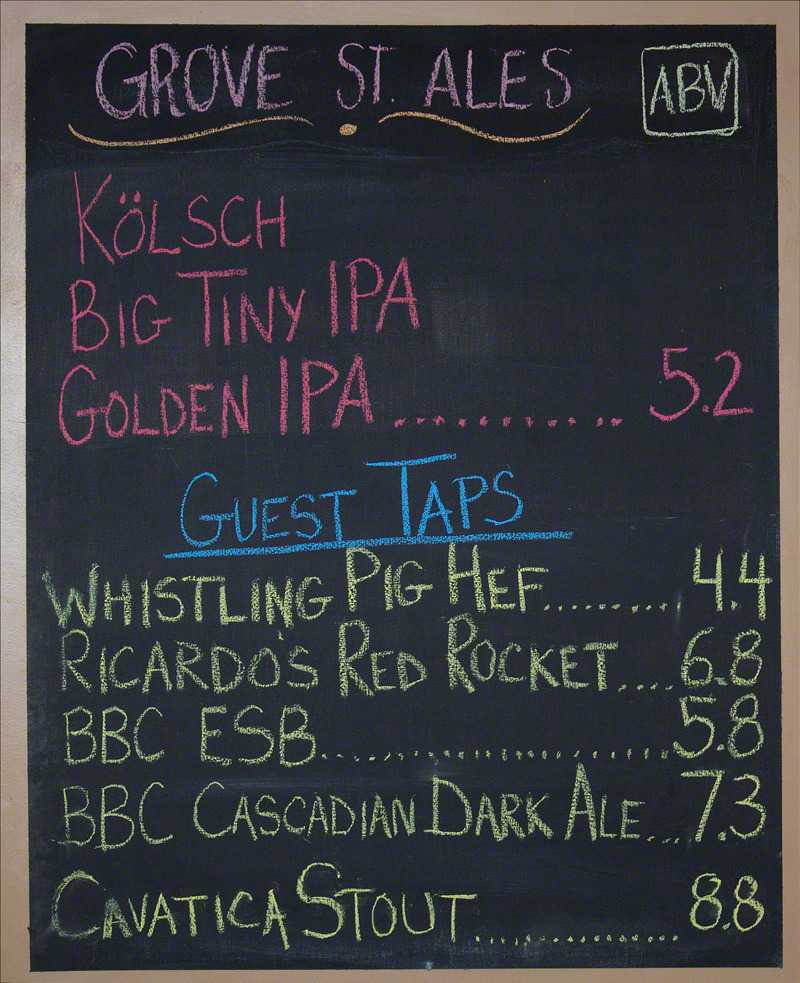 GROVE ST. ALES ABV
KÖLSCH
BIG TINY IPA
GOLDEN IPA ............ 5.2
GUEST TAPS
WHISTLING PIG HEF .......... 4.4
RICARDO'S RED ROCKET .... 6.8
BBC ESB ........................ 5.8
BBC CASCADIAN DARK ALE ... 7.3
CAVATICA STOUT ................ 8.8